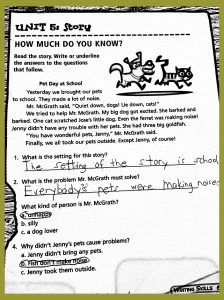 UNIT 5: Story
HOW MUCH DO YOU KNOW?
Read the story. Write or underline
the answers to the questions
that follow.
Pet Day at School
Yesterday we brought our pets
to school. They made a lot of noise.
Mr. McGrath said, "Quiet down, dogs! Lie down, cats!"
We tried to help Mr. McGrath. My big dog got excited. She barked and
barked. One cat scratched Joe's little dog. Even the ferret was making noise!
Jenny didn't have any trouble with her pets. She had three big goldfish.
"You have wonderful pets, Jenny," Mr. McGrath said.
Finally, we all took our pets outside. Except Jenny, of course!
1. What is the setting for this story?
The setting of the story is school
2. What is the problem Mr. McGrath must solve?
Everybody's pets were making noise
What kind of person is Mr. McGrath?
a. unhappy
b. silly
c. a dog lover
4. Why didn't Jenny's pets cause problems?
a. Jenny didn't bring any pets.
b. Fish don't make noise.
c. Jenny took them outside.
WRITING SKILLS